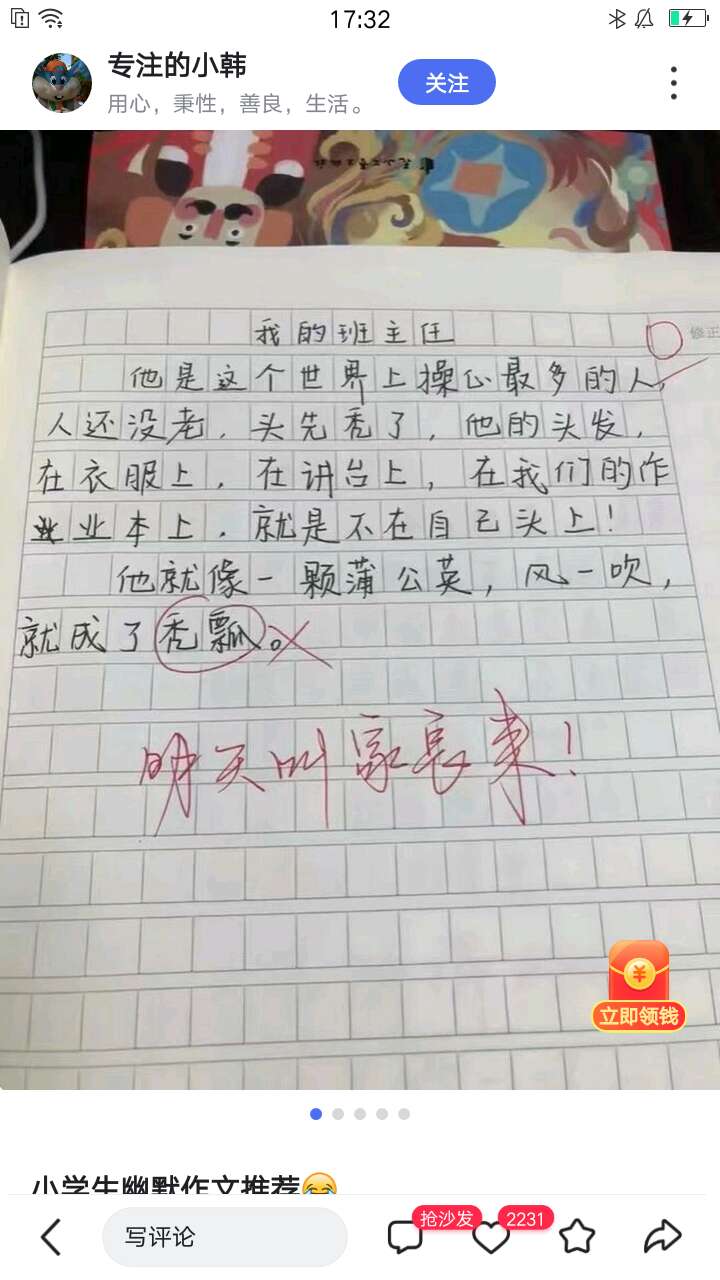 17:32
专注的小韩
用心，秉性，善良，生活。
关注
修正
我的班主任
他是这个世界上操心最多的人，
人还没老，头先秃了，他的头发，
在衣服上，在讲台上，在我们的作
业业本上，就是不在自己头上！
他就像一颗蒲公英，风一吹，
就成了秃瓢。
明天叫家长来！
立即领钱
小学生幽默作文推荐😂
写评论
抢沙发
2231